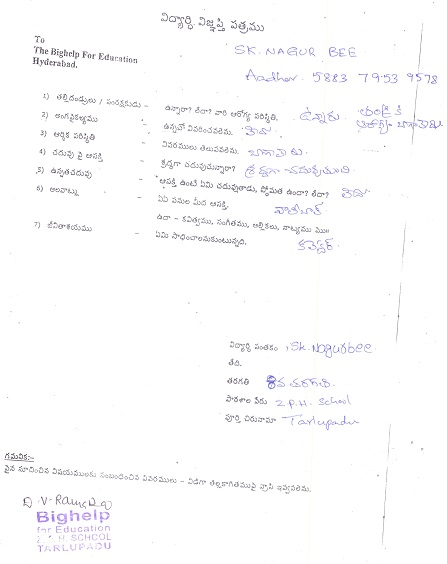 విద్యార్థి విజ్ఞప్తి పత్రము
To
The Bighelp For Education
Hyderabad.
SK. NAGUR BEE
Aadhar 5883 7953 9578
1) తల్లిదండ్రులు / సంరక్షకుడు - ఉన్నారా? లేదా? వారి ఆరోగ్య పరిస్థితి. ఉన్నారు తండ్రికి
2) అంగవైకల్యము - ఉన్నచో వివరించవలెను.
3) ఆర్థిక పరిస్థితి - వివరములు తెలుపవలెను.
4) చదువు పై ఆసక్తి - శ్రద్ధగా చదువుచున్నారా? శ్రద్ధగా చదువుతుంది
5) ఉన్నతచదువు - ఆసక్తి ఉంటే ఏమి చదువుతాడు, స్తోమత ఉందా? లేదా?
6) అలవాట్లు - ఏఏ పనుల మీద ఆసక్తి.
ఉదా - కవిత్వము, సంగీతము, అల్లికలు, నాట్యము ॥
7) జీవితాశయము - ఏమి సాధించాలనుకుంటున్నది. కలెక్టర్.
విద్యార్థి సంతకం : Sk. Nagurbee
తేది.
తరగతి 8వ తరగతి.
పాఠశాల పేరు Z.P.H. School
పూర్తి చిరునామా Tarlupadu
గమనిక:-
పైన సూచించిన విషయములకు సంబంధించిన వివరములు - విడిగా తెల్లకాగితముపై వ్రాసి ఇవ్వవలెను.
Bighelp
for Education
Z.P.H. SCHOOL
TARLUPADU